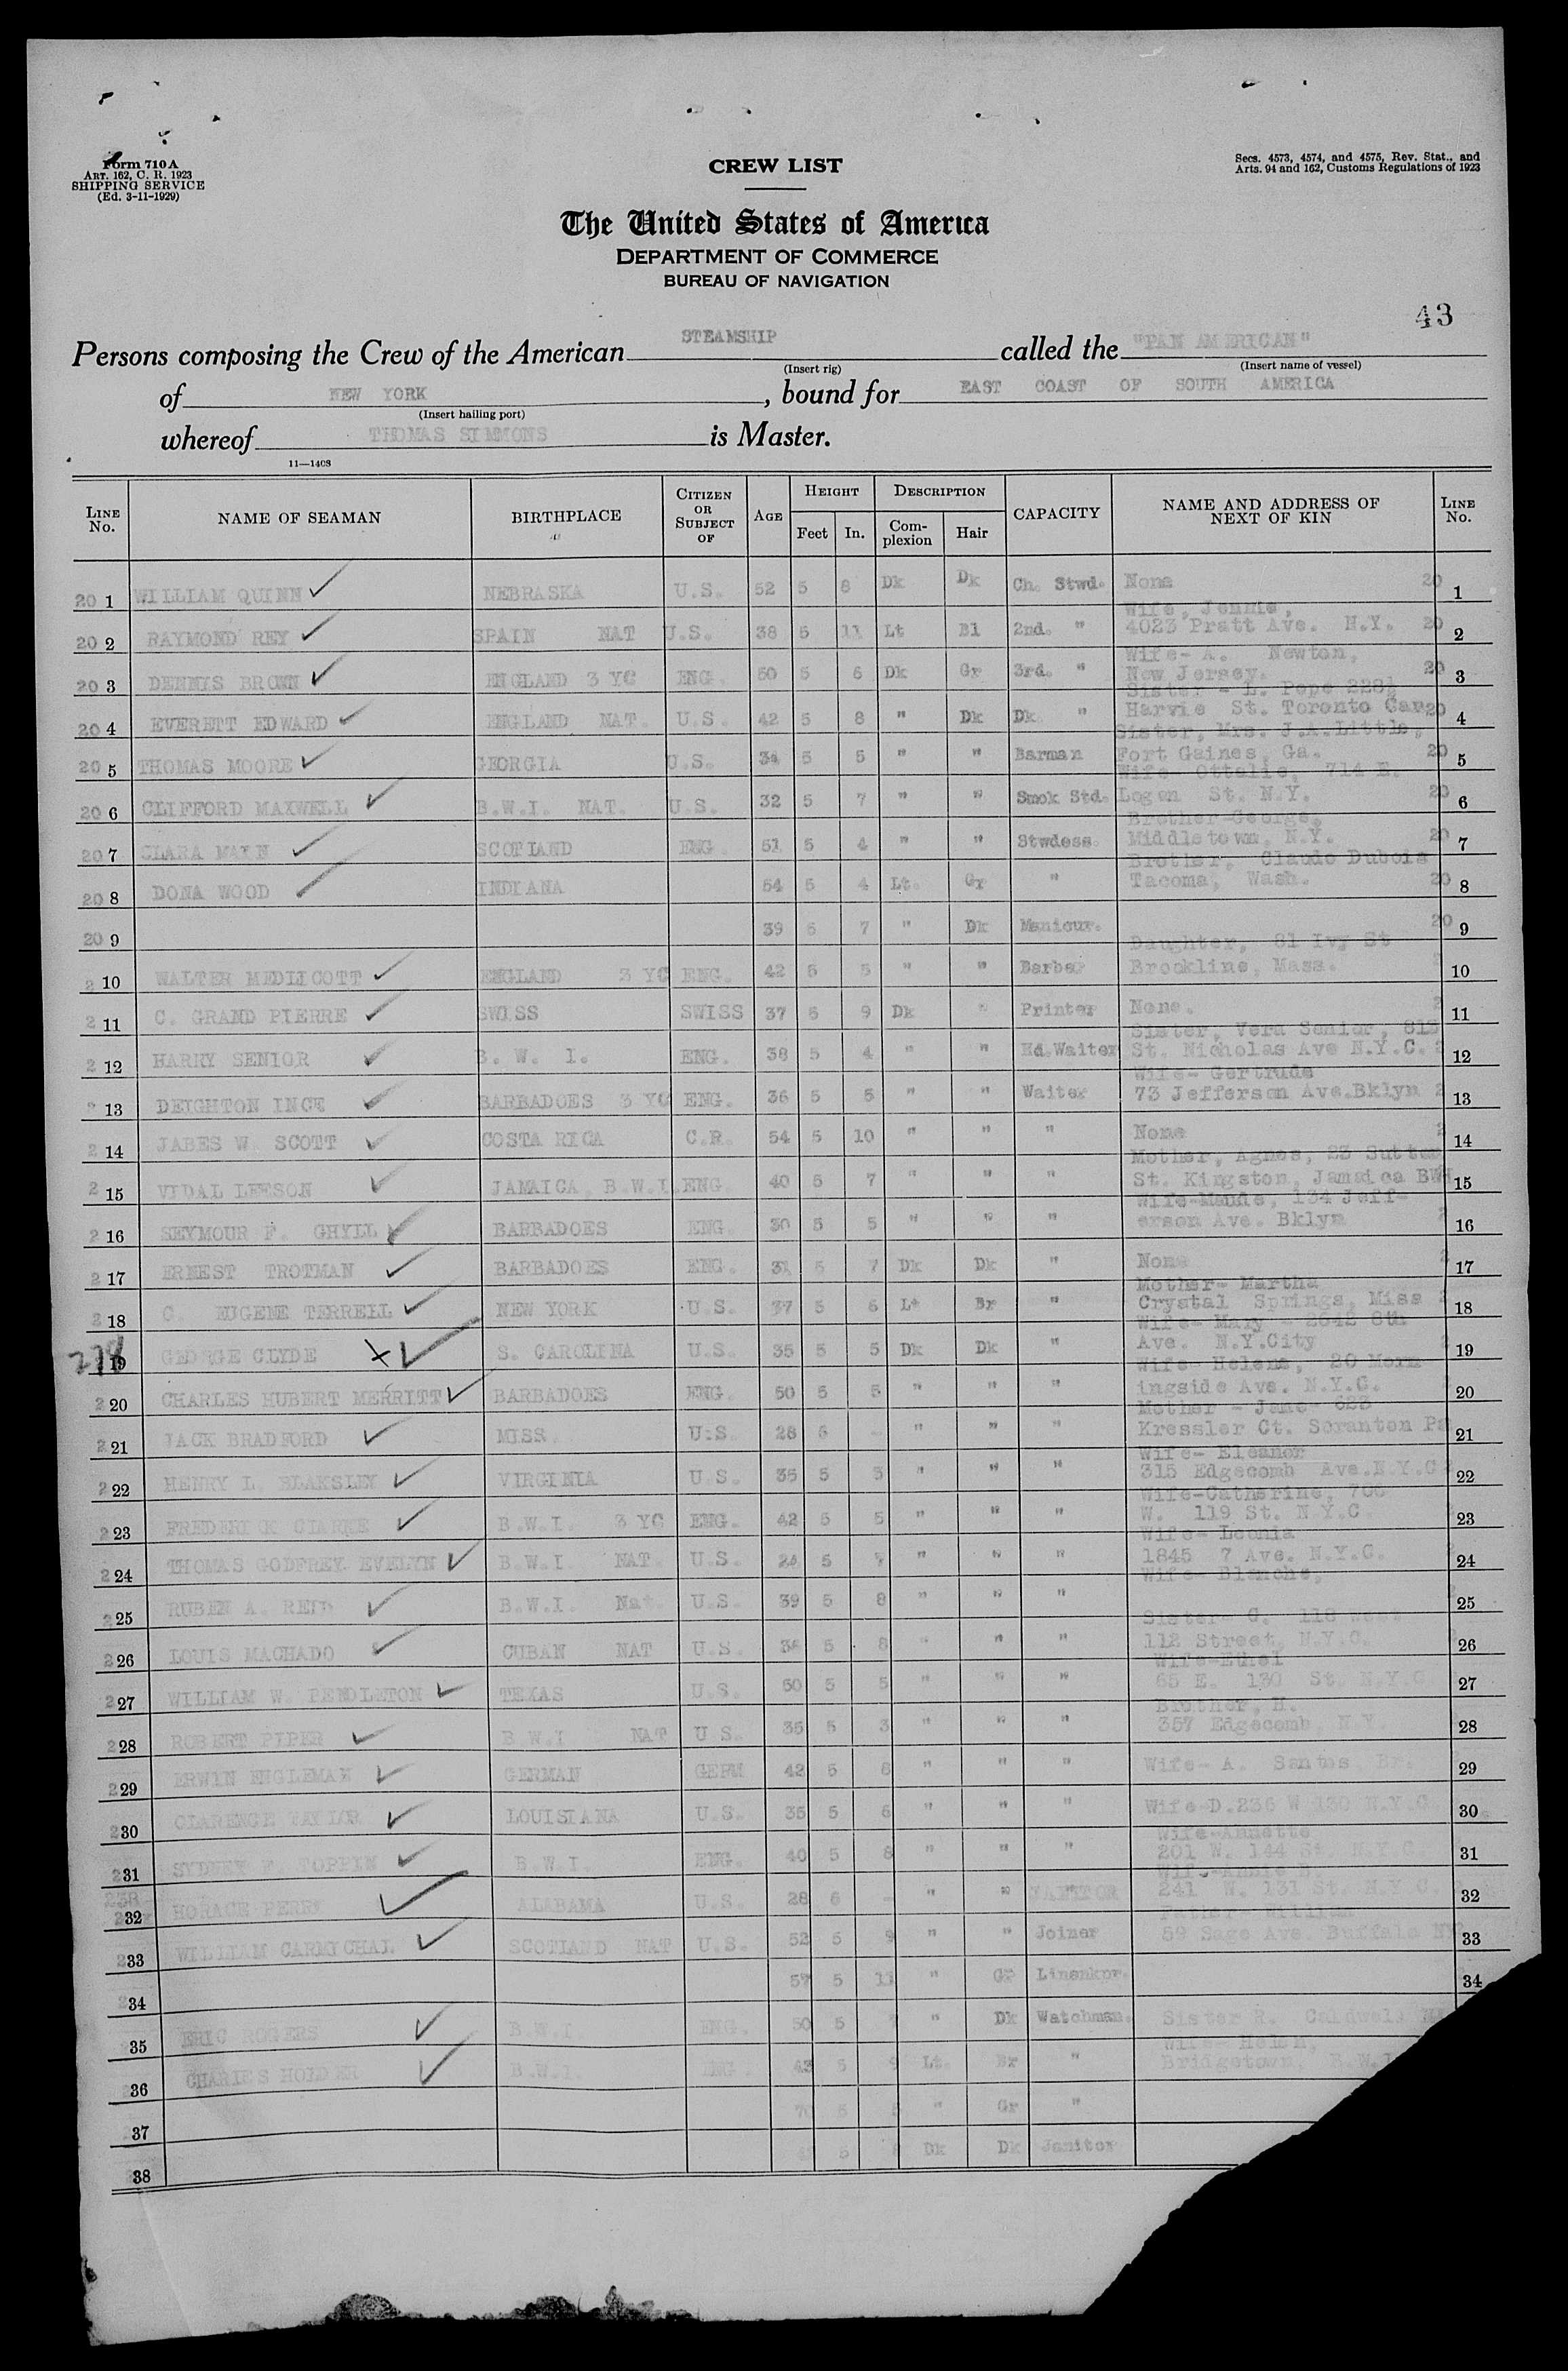 Form 710 A
ART. 162, C. R. 1923
SHIPPING SERVICE
(Ed. 3-11-1929)
CREW LIST
Secs. 4573, 4574, and 4575, Rev. Stat., and
Arts. 94 and 162, Customs Regulations of 1923
The United States of America
DEPARTMENT OF COMMERCE
BUREAU OF NAVIGATION
43
Persons composing the Crew of the American STEAMSHIP called the "PAN AMERICAN"
(Insert rig) (Insert name of vessel)
of NEW YORK, bound for EAST COAST OF SOUTH AMERICA
(Insert hailing port)
whereof THOMAS SIMMONS is Master.
11—1408
LINE No. NAME OF SEAMAN BIRTHPLACE CITIZEN OR SUBJECT OF AGE HEIGHT Feet In. DESCRIPTION Complexion Hair CAPACITY NAME AND ADDRESS OF NEXT OF KIN LINE No.
20 1 WILLIAM QUINN ✓ NEBRASKA U.S. 52 5 8 Dk Dk Ch. Stwd. None 20 1
20 2 RAYMOND REY ✓ SPAIN NAT U.S. 38 5 11 Lt Bl 2nd. " Wife, Jennie, 4023 Pratt Ave. N.Y. 20 2
20 3 DENNIS BROWN ✓ ENGLAND 3 YC ENG. 50 5 6 Dk Gr 3rd. " Wife- A. Newton, New Jersey. 20 3
20 4 EVERETT EDWARD ✓ ENGLAND NAT. U.S. 42 5 8 " Dk Dk " Sister - L. Pope 228½ Harvie St. Toronto Can 20 4
20 5 THOMAS MOORE ✓ GEORGIA U.S. 34 5 5 " " Barman Sister, Mrs. J.A.Little, Fort Gaines, Ga. 20 5
20 6 CLIFFORD MAXWELL ✓ B.W.I. NAT. U.S. 32 5 7 " " Smok Std. Wife- Ottelie, 714 E. Logan St. N.Y. 20 6
20 7 CLARA MAIN ✓ SCOTLAND ENG. 51 5 4 " " Stwdess. Brother-George, Middletown, N.Y. 20 7
20 8 DONA WOOD ✓ INDIANA 54 5 4 Lt. Gr " Brother, Claude Dubois Tacoma, Wash. 20 8
20 9 39 5 7 " Dk Manicur. 20 9
2 10 WALTER MEDLICOTT ✓ ENGLAND 3 YC ENG. 42 5 5 " " Barber Daughter, 81 Ivy St Brookline, Mass. 10
2 11 C. GRAND PIERRE ✓ SWISS SWISS 37 5 9 Dk " Printer None. 2 11
2 12 HARRY SENIOR ✓ B. W. I. ENG. 38 5 4 " " Hd.Waiter Sister, Vera Senior, 813 St. Nicholas Ave N.Y.C. 2 12
2 13 DEIGHTON INCE ✓ BARBADOES 3 YC ENG. 36 5 5 " " Waiter Wife- Gertrude 73 Jefferson Ave.Bklyn 2 13
2 14 JABES W. SCOTT ✓ COSTA RICA C.R. 54 5 10 " " " None 2 14
2 15 VIDAL LEESON ✓ JAMAICA, B.W.I. ENG. 40 5 7 " " " Mother, Agnes, 23 Sutton St. Kingston, Jamaica BWI 15
2 16 SEYMOUR F. GHYLL ✓ BARBADOES ENG. 30 5 5 " " " Wife-Maude, 134 Jefferson Ave. Bklyn 2 16
2 17 ERNEST TROTMAN ✓ BARBADOES ENG. 31 5 7 Dk Dk " None 2 17
2 18 C. EUGENE TERRELL ✓ NEW YORK U.S. 37 5 6 Lt Br " Mother- Martha Crystal Springs, Miss 2 18
278 19 GEORGE CLYDE X ✓ S. CAROLINA U.S. 35 5 5 Dk Dk " Wife- Mary - 2642 8th Ave. N.Y.City 2 19
2 20 CHARLES HUBERT MERRITT ✓ BARBADOES ENG. 50 5 5 " " " Wife- Helena, 20 Morningside Ave. N.Y.C. 20
2 21 JACK BRADFORD ✓ MISS. U.S 28 6 - " " " Mother - Jane 623 Kressler Ct. Scranton Pa 21
2 22 HENRY L. BLAKSLEY ✓ VIRGINIA U.S. 35 5 3 " " " Wife- Eleanor 315 Edgecomb Ave.N.Y.C 22
2 23 FREDERICK CLARKE ✓ B.W.I. 3 YC ENG. 42 5 5 " " " Wife-Catherine, W. 119 St. N.Y.C 23
2 24 THOMAS GODFREY EVELYN ✓ B.W.I NAT. U.S. 5 " " " Wife- Leonia 1845 7 Ave. N.Y.C. 24
2 25 RUBEN A. REID ✓ B.W.I. Nat. U.S. 39 5 8 " " " Wife- Blanche, 25
2 26 LOUIS MACHADO ✓ CUBAN NAT U.S. 5 8 " " " Sister- C. 118 West 112 Street, N.Y.C. 26
2 27 WILLIAM W. PENDLETON ✓ TEXAS U.S. 50 5 5 " " " Wife-Ethel 65 E. 130 St. N.Y.C 27
2 28 ROBERT PIPER ✓ B.W.I NAT U.S. 35 5 3 " " " Brother, H. 357 Edgecomb, N.Y. 28
2 29 ERWIN ENGLEMAN ✓ GERMAN GERM 42 5 8 " " " Wife- A. Santos Br. 29
2 30 CLARENCE TAYLOR ✓ LOUISIANA U.S. 35 5 6 " " " Wife D.236 W 130 N.Y.C 30
2 31 SYDNEY F. TOPPIN ✓ B.W.I. ENG. 40 5 8 " " " Wife-Annette 201 W. 144 St. N.Y.C. 31
2 32 HORACE PERRY ✓ ALABAMA U.S. 28 6 - " " JANITOR Wife-Annie B. 241 W. 131 St. N.Y.C. 32
2 33 WILLIAM CARMICHAL ✓ SCOTLAND NAT U.S. 52 5 9 " " Joiner Father- William 59 Sage Ave. Buffalo NY 33
2 34 57 5 11 " Gr Linenkpr. 34
35 ERIC ROGERS ✓ B.W.I ENG. 50 5 " Dk Watchman. Sister R. Caldwell
36 CHARLES HOLDER ✓ B.W.I ENG. 43 5 9 Lt. Br " Wife- Helen, Bridgetown, B.W.I
37 70 5 " Gr "
38 5 Dk Dk Janitor